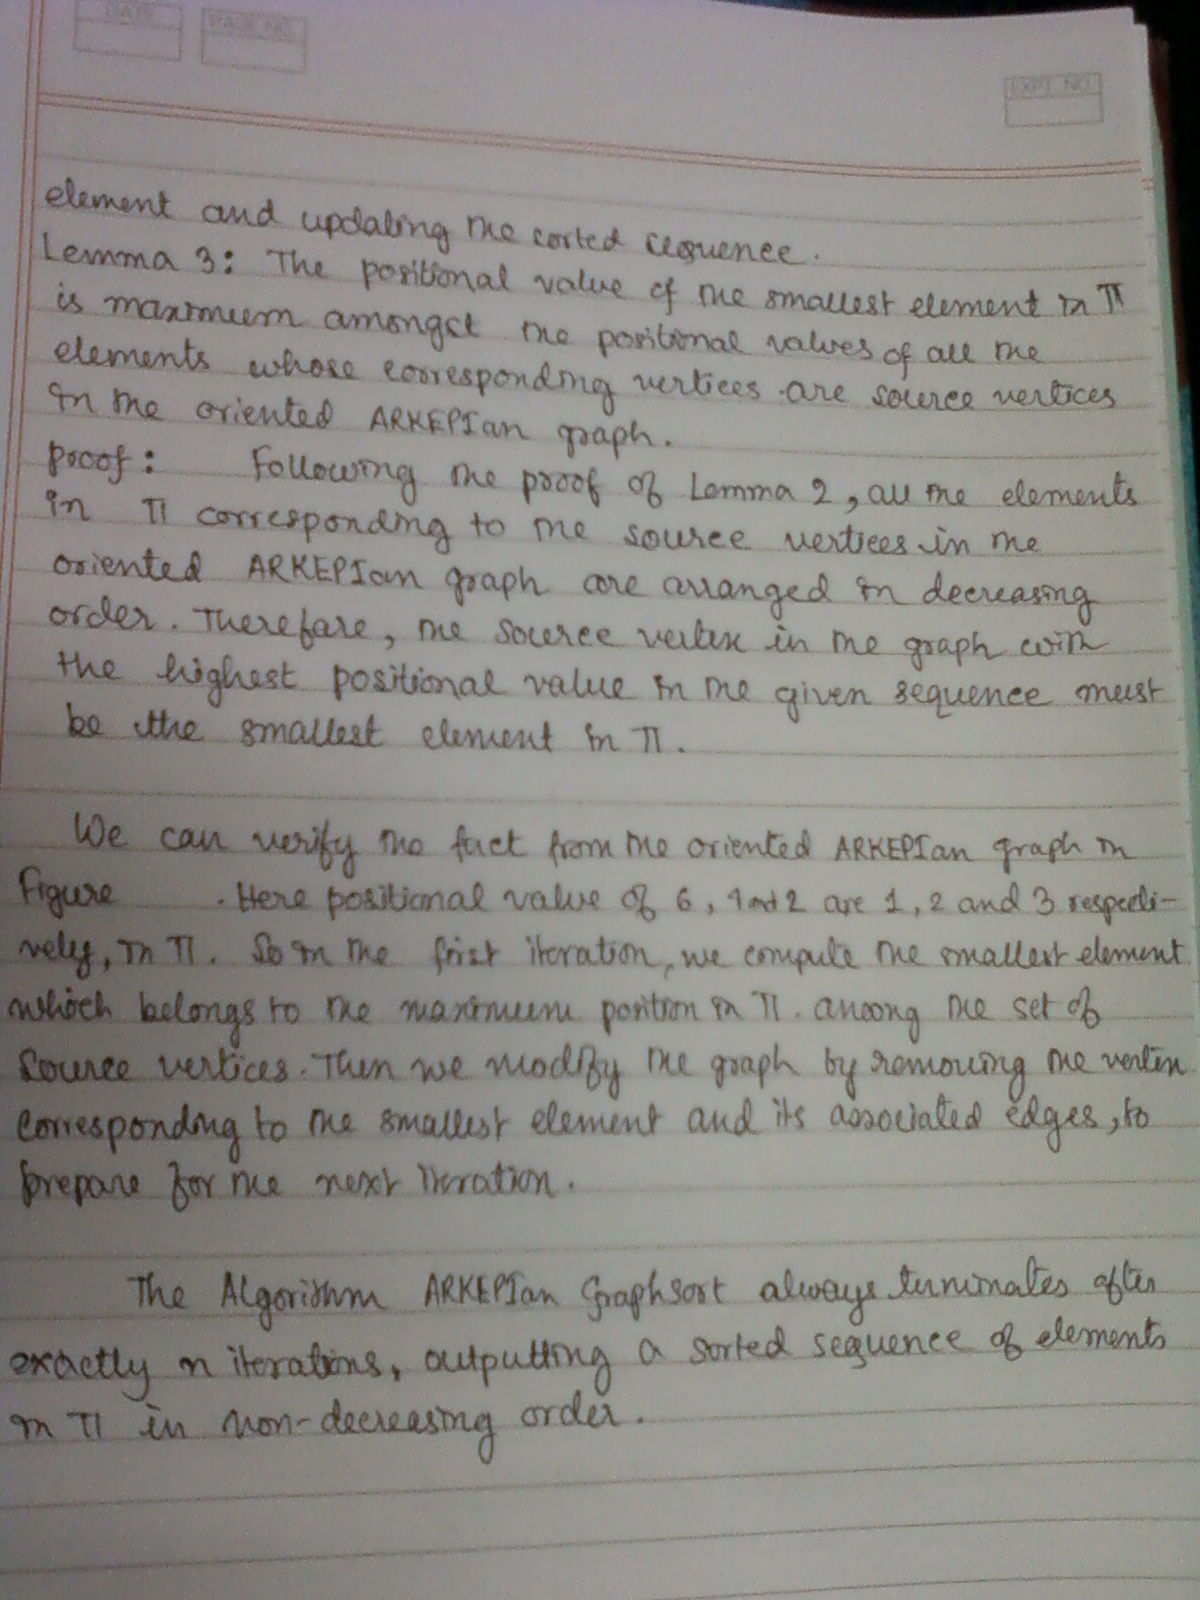 DATE
PAGE NO.
EXPT. NO.
element and updating the sorted sequence.
Lemma 3: The positional value of the smallest element in π
is maximum amongst the positional values of all the
elements whose corresponding vertices are source vertices
in the oriented ARKEPIan graph.
proof: Following the proof of Lemma 2, all the elements
in π corresponding to the source vertices in the
oriented ARKEPIan graph are arranged in decreasing
order. Therefore, the source vertex in the graph with
the highest positional value in the given sequence must
be the smallest element in π.
We can verify the fact from the oriented ARKEPIan graph in
Figure . Here positional value of 6, 4 and 2 are 1, 2 and 3 respecti-
vely, in π. So in the first iteration, we compute the smallest element
which belongs to the maximum position in π. among the set of
source vertices. Then we modify the graph by removing the vertex
corresponding to the smallest element and its associated edges, to
prepare for the next iteration.
The Algorithm ARKEPIan Graphsort always terminates after
exactly n iterations, outputting a sorted sequence of elements
in π in non-decreasing order.